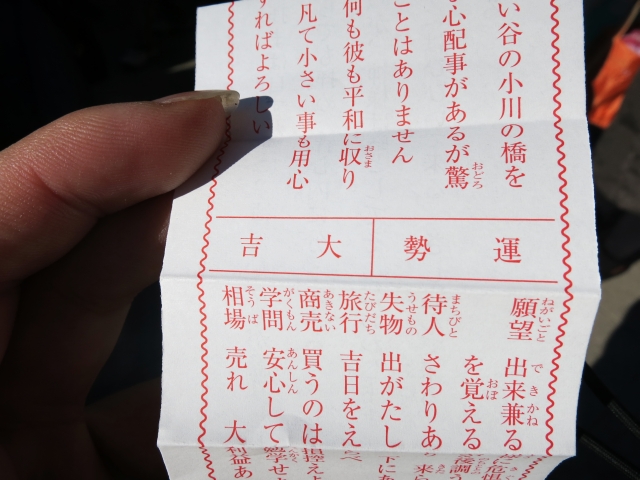 い谷の小川の橋を
心配事があるが驚
ことはありません
何も彼も平和に収り
凡て小さい事も用心
すればよろしい
運勢
大吉
願望 出来兼る
を覚える
待人 さわりあ
失物 出がたし
旅行 吉日をえ
商売 買うのは
学問 安心して
相場 売れ 大